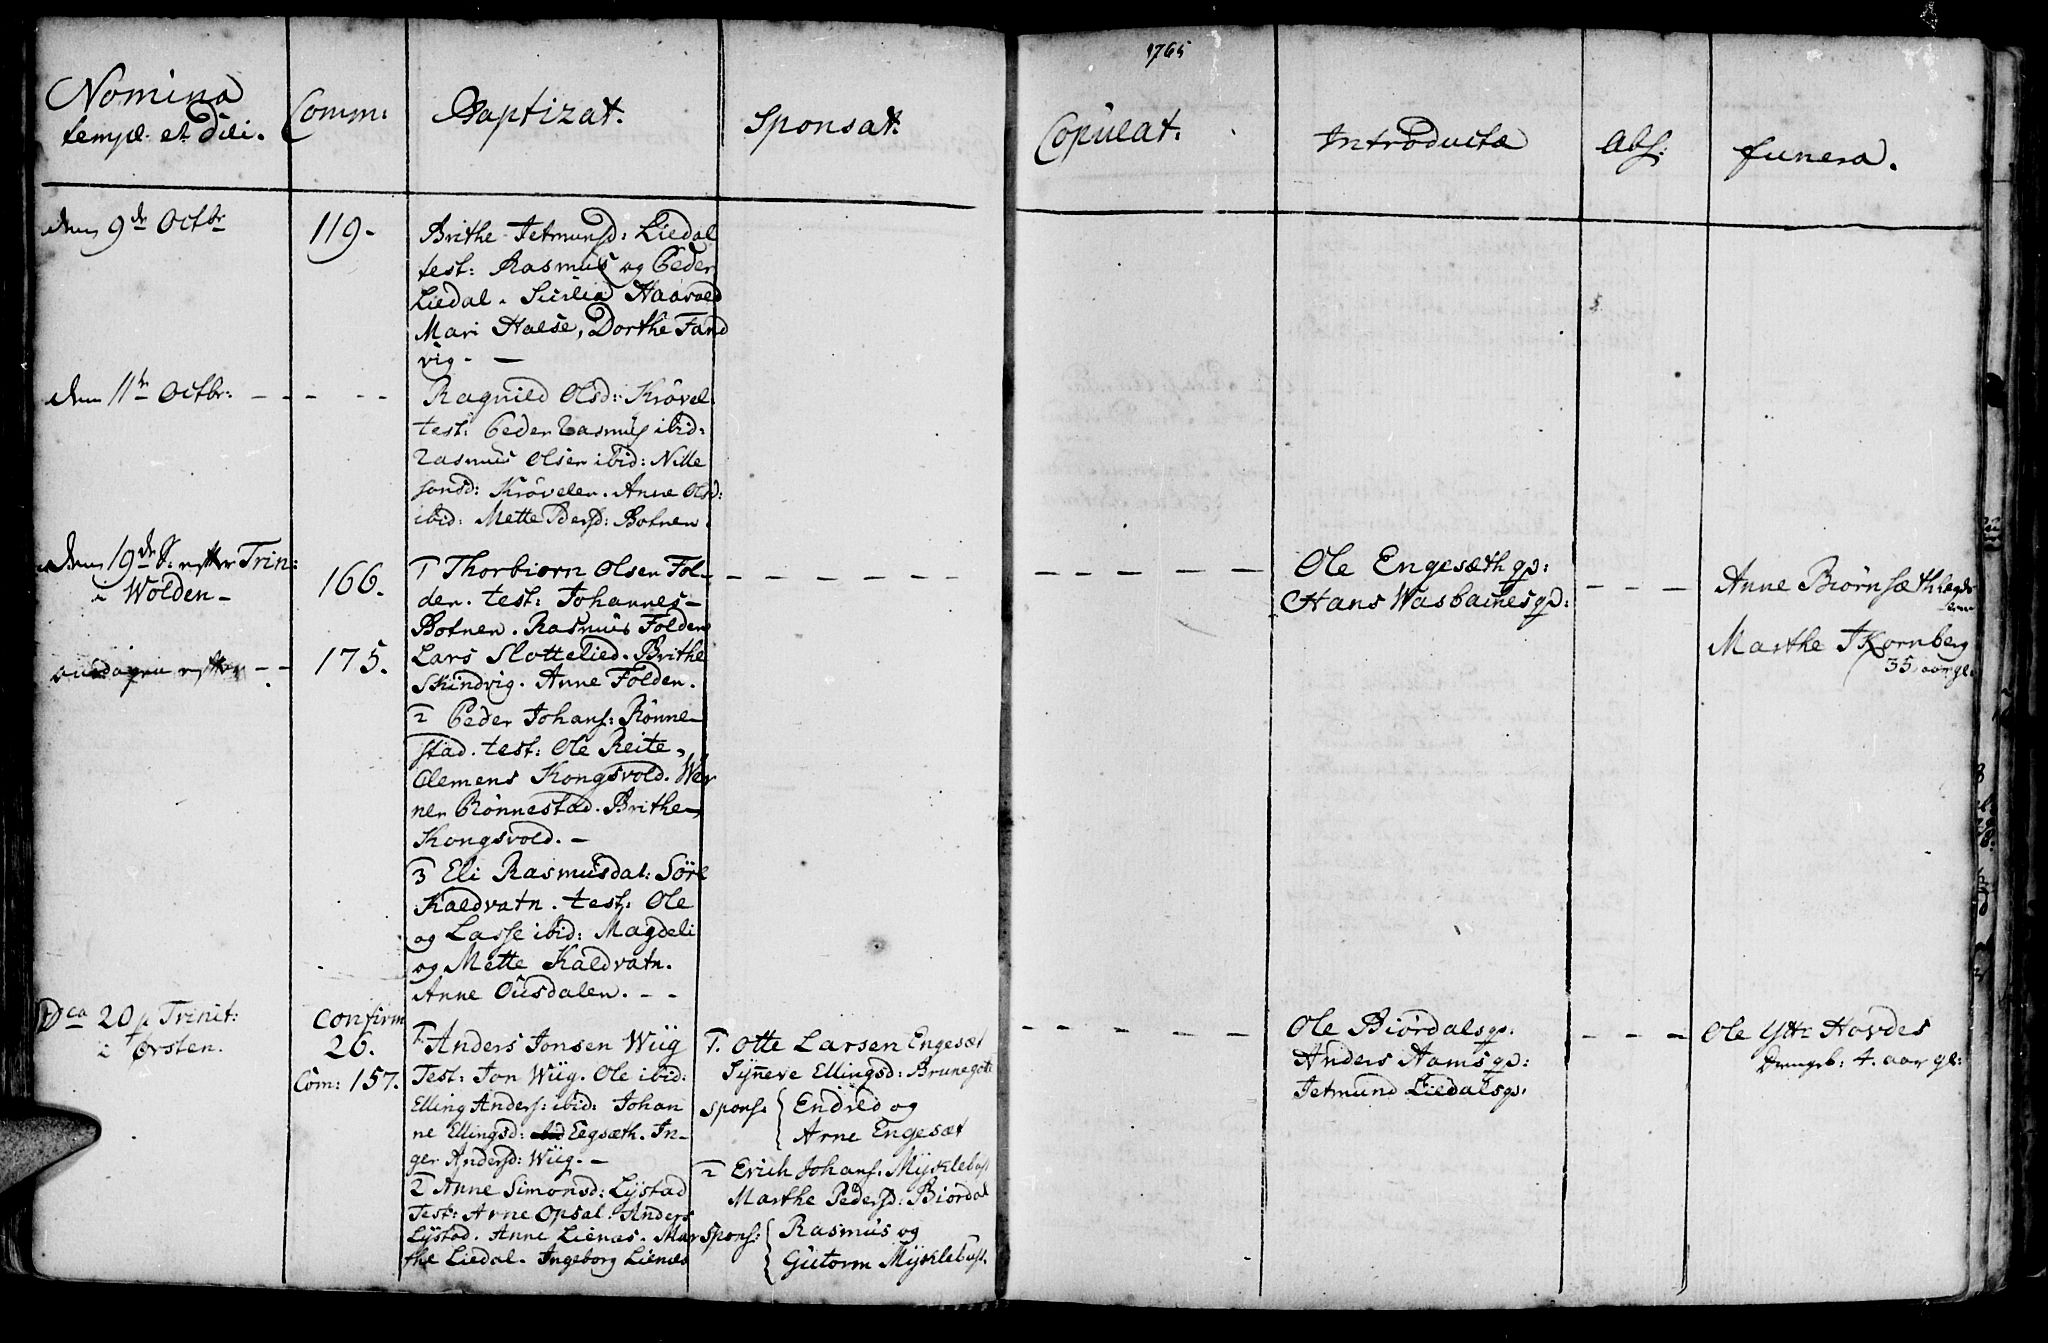 1765
Nomina
templ. et Diei.
Comm:
Baptizat.
Sponsat.
Copulat:
Introducta
Abs:
funera.
den 9de Octbr
119.
Brithe Jetmunsd: Liedal
test: Rasmus og Peder
Liedal. Sicilia Haavold
Mari Halse, Dorthe Fand
vig. —
den 11te Octbr:
Ragnild Olsd: Krövel.
test: Peder Rasmus ibid:
Rasmus Olsen ibid: Nille
Jonsd: Krövelen. Anne Olsd:
ibid: Mette Pdersd: Botnen.
den 19de S: efter Trin:
i Wolden —
166.
1 Thorbiörn Olsen Fol-
den. test: Johannes
Botnen. Rasmus Folden
Lars Slottelied. Brithe
Skindvig. Anne Folden.
Ole Engesæth gp:
Hans Wasbachesgp:
Anne Biörnsæth
Marthe Kornberg
35 aar gl.
onsdagen efter
175.
2 Peder Johans: Rönne-
stad. test: Ole Reite,
Clemens Kongsvold. Wer
ner Rönnestad. Brithe
Kongsvold. —
3 Eli Rasmusdat: Söre
Kaldvatn. test: Ole
og Lasse ibid: Magdeli
og Mette Kaldvatn.
Anne Ousdalen. - -
Dca 20 p Trinit:
i Örsten.
Confirm
26.
Com: 157.
1. Anders Jonsen Wiig
Test: Jon Wiig. Ole ibid:
Elling Anders: ibid: Johan
ne Ellingsd: Eegsæth. In-
ger Andersd: Wiig. —
2 Anne Simonsd: Lystad
Test: Arne Opsal. Anders
Lystad. Anne Lienæs. Mar
the Liedal. Ingeborg Lienæs
1. Otte Larsen Engesæt
Synneve Ellingsd: Brunegote
spons: { Endred og
Arne Engesæt
2 Erich Johans. Myklebust
Marthe Pedersd: Biördal
spons: { Rasmus og
Gutorm Myklebust.
Ole Biördalsgp:
Anders Aamsgp:
Jetmund Liedalsgp:
Ole Ytr Hovdes
Drengeb: 4. aar gl: